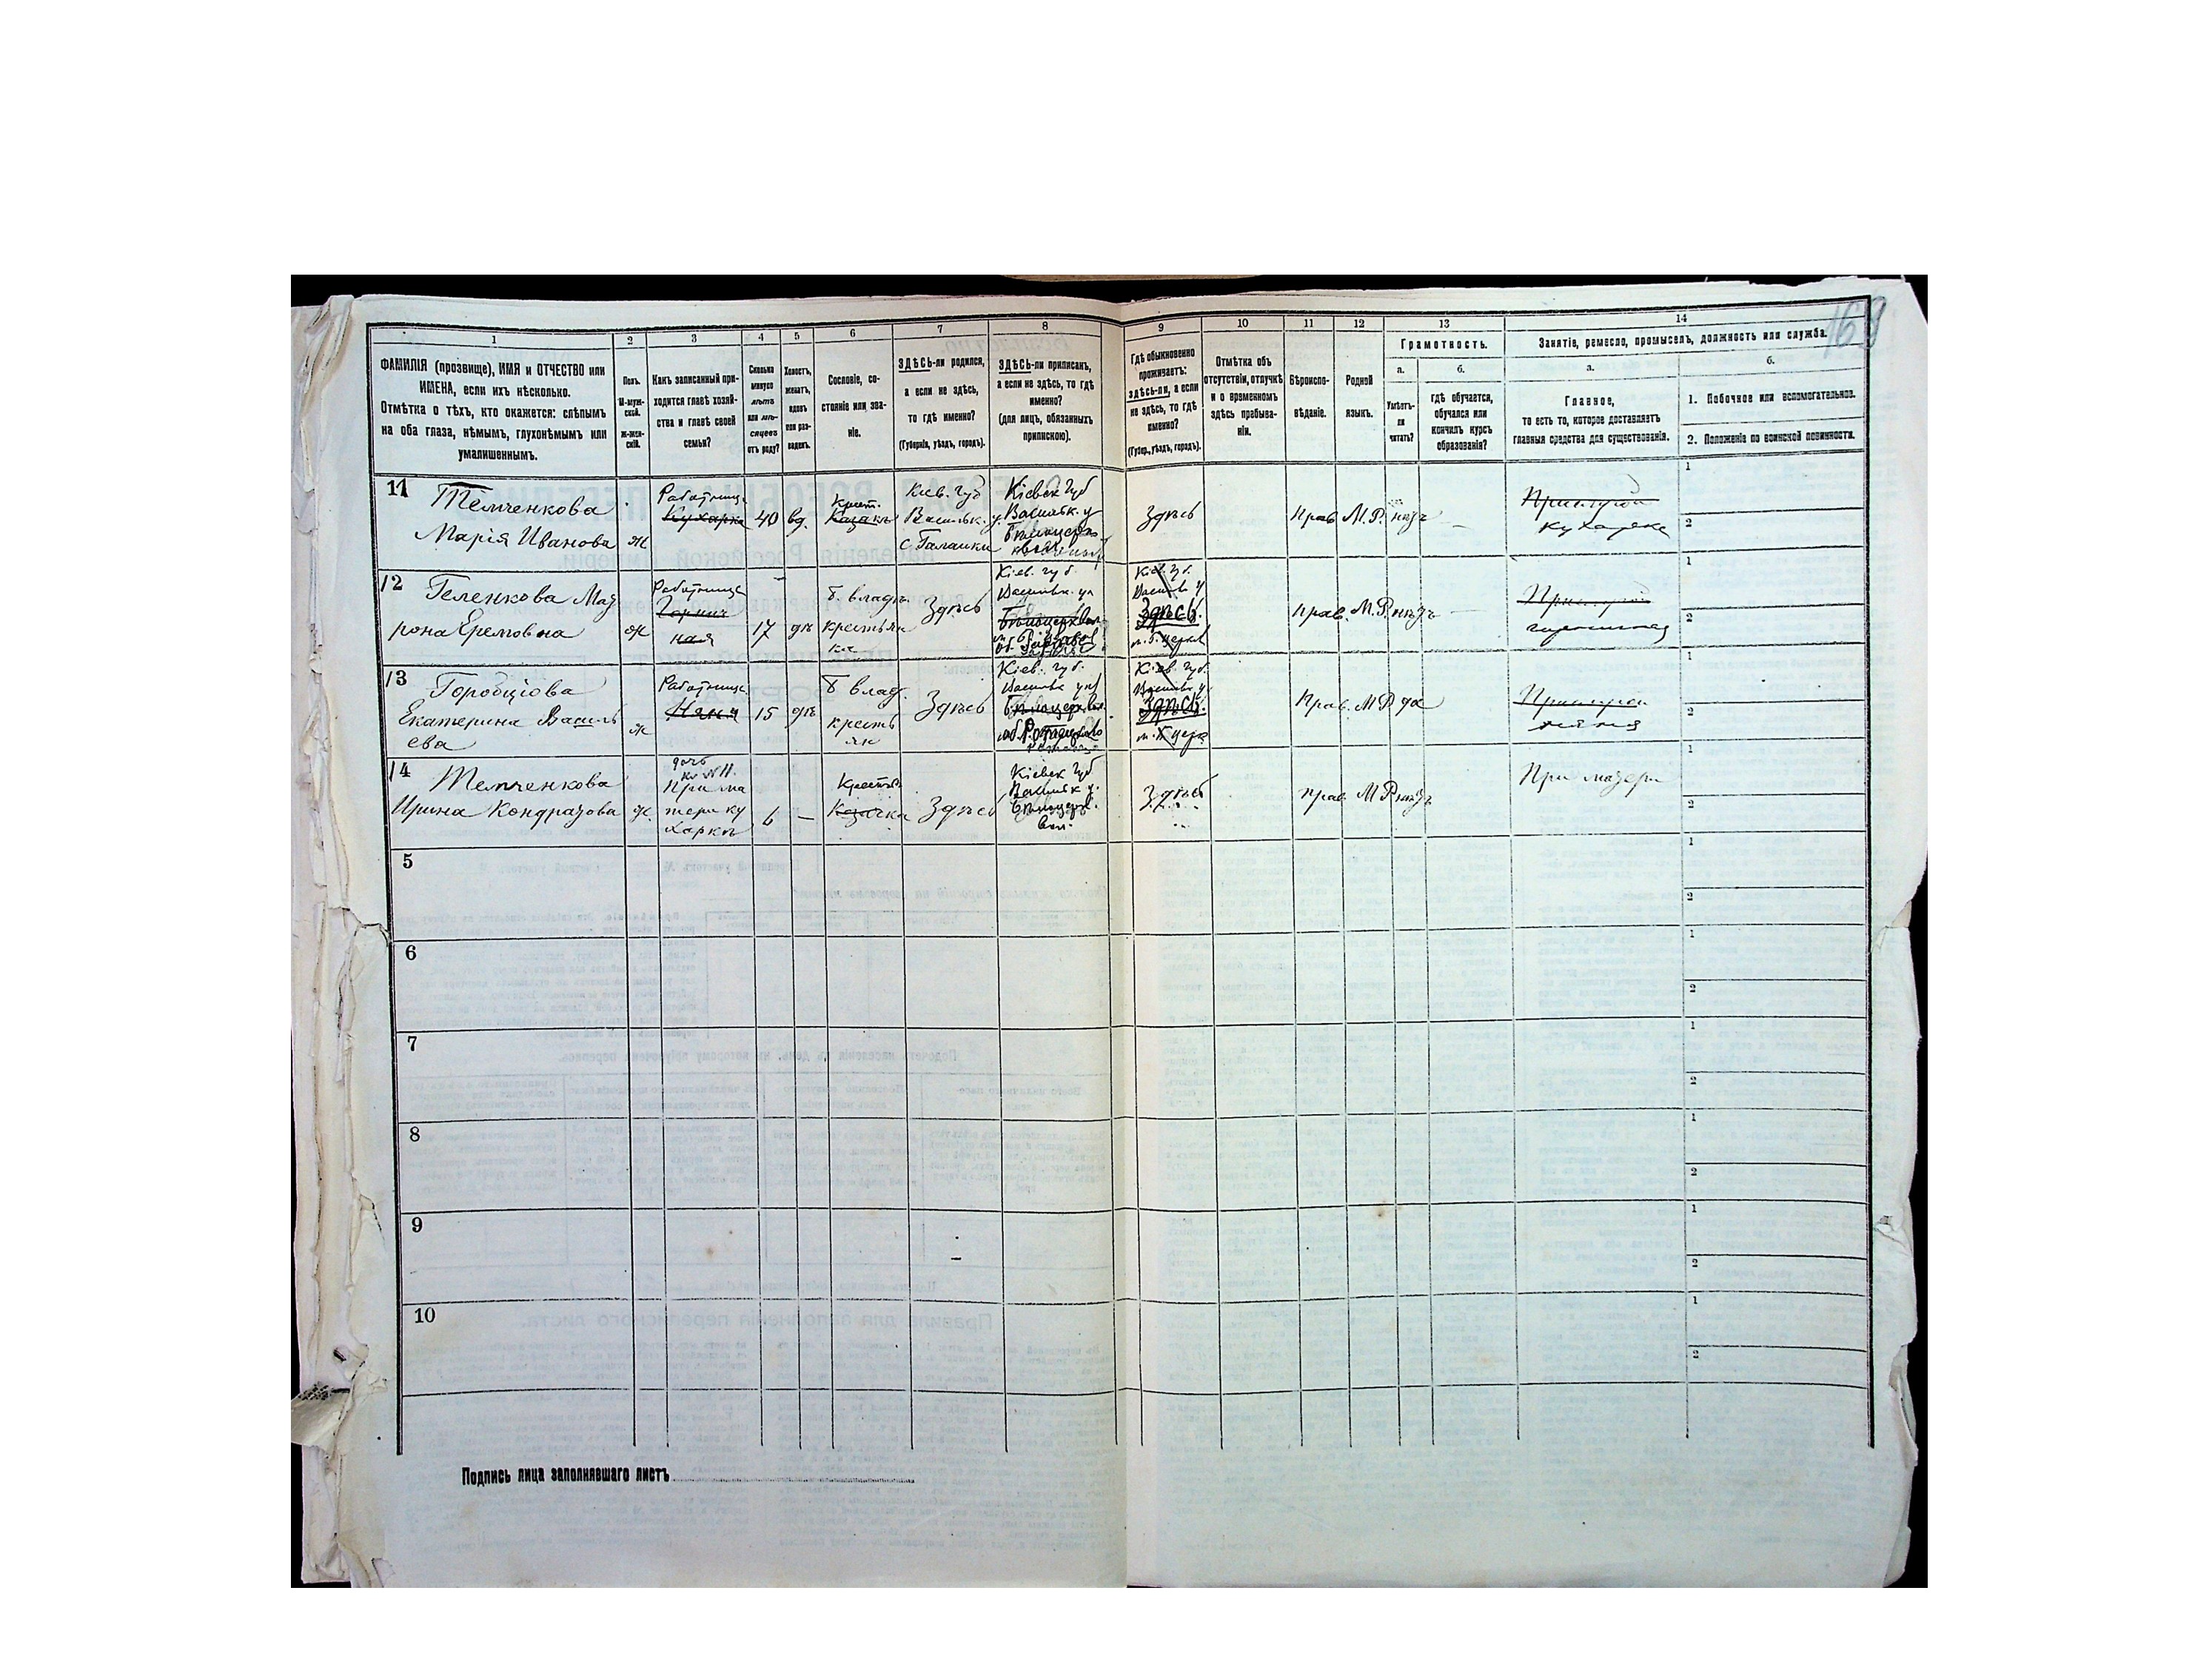 163
1
2
3
4
5
6
7
8
9
10
11
12
13
14
ФАМИЛІЯ (прозвище), ИМЯ и ОТЧЕСТВО или
ИМЕНА, если ихъ нѣсколько.
Отмѣтка о тѣхъ, кто окажется: слѣпымъ
на оба глаза, нѣмымъ, глухонѣмымъ или
умалишеннымъ.
Полъ.
М-муж-
ской.
ж-жен-
скій.
Какъ записанный при-
ходится главѣ хозяй-
ства и главѣ своей
семьи?
Сколько
минуло
лѣтъ
или мѣ-
сяцевъ
отъ роду?
Холостъ,
женатъ,
вдовъ
или раз-
веденъ.
Сословіе, со-
стояніе или зва-
ніе.
ЗДѢСЬ-ли родился,
а если не здѣсь,
то гдѣ именно?
(Губернія, уѣздъ, городъ).
ЗДѢСЬ-ли приписанъ,
а если не здѣсь, то гдѣ
именно?
(для лицъ, обязанныхъ
припискою).
Гдѣ обыкновенно
проживаетъ:
здѣсь-ли, а если
не здѣсь, то гдѣ
именно?
(Губер., уѣздъ, городъ).
Отмѣтка объ
отсутствіи, отлучкѣ
и о временномъ
здѣсь пребыва-
ніи.
Вѣроиспо-
вѣданіе.
Родной
языкъ.
Грамотность.
а.
б.
Умѣетъ-
ли
читать?
гдѣ обучается,
обучался или
кончилъ курсъ
образованія?
Занятіе, ремесло, промыселъ, должность или служба.
а.
б.
Главное,
то есть то, которое доставляетъ
главныя средства для существованія.
1. Побочное или вспомогательное.
2. Положеніе по воинской повинности.
11
Темченкова
Марія Иванова
ж
Работница
Кухарка
40
вд.
Крест.
Казачка
Кіев. губ
Васильк. у.
с. Галайки
Кіевск губ
Васильк. у
Здѣсь
Прав
М.Р.
нѣтъ
—
Прислугой
кухарка
1
2
12
Геленкова Мат
рона Еремовна
ж
Работница
Горнич
ная
17
дѣ
б. владѣ.
крестьян
ка
Здѣсь
Кіев. губ.
Васильк. у
Кіев. губ.
Васильк у
Здѣсь.
м. Б. Церкв
Прав.
М.Р.
нѣтъ
—
Прислугой
горничная
1
2
13
Горобціова
Екатерина Василь
ева
ж
Работница
Няня
15
дѣ
б влад.
кресть
ян
Здѣсь
Кіев. губ.
Васильк у
Кіев. губ.
Васильк у
Здѣсь.
м. Б Церк
Прав.
М Р
да
Прислугой
няня
1
2
14
Темченкова
Ирина Кондратова
ж.
дочь
къ №11.
При ма
тери ку
харкѣ
6
—
Крестья
Казачка
Здѣсь
Кіевск губ
Васильк у.
Бѣлоцерк.
вол.
Здѣсь
Прав
М Р
нѣтъ
При матери
1
2
5
1
2
6
1
2
7
1
2
8
1
2
9
1
2
10
1
2
Подпись лица заполнявшаго листъ